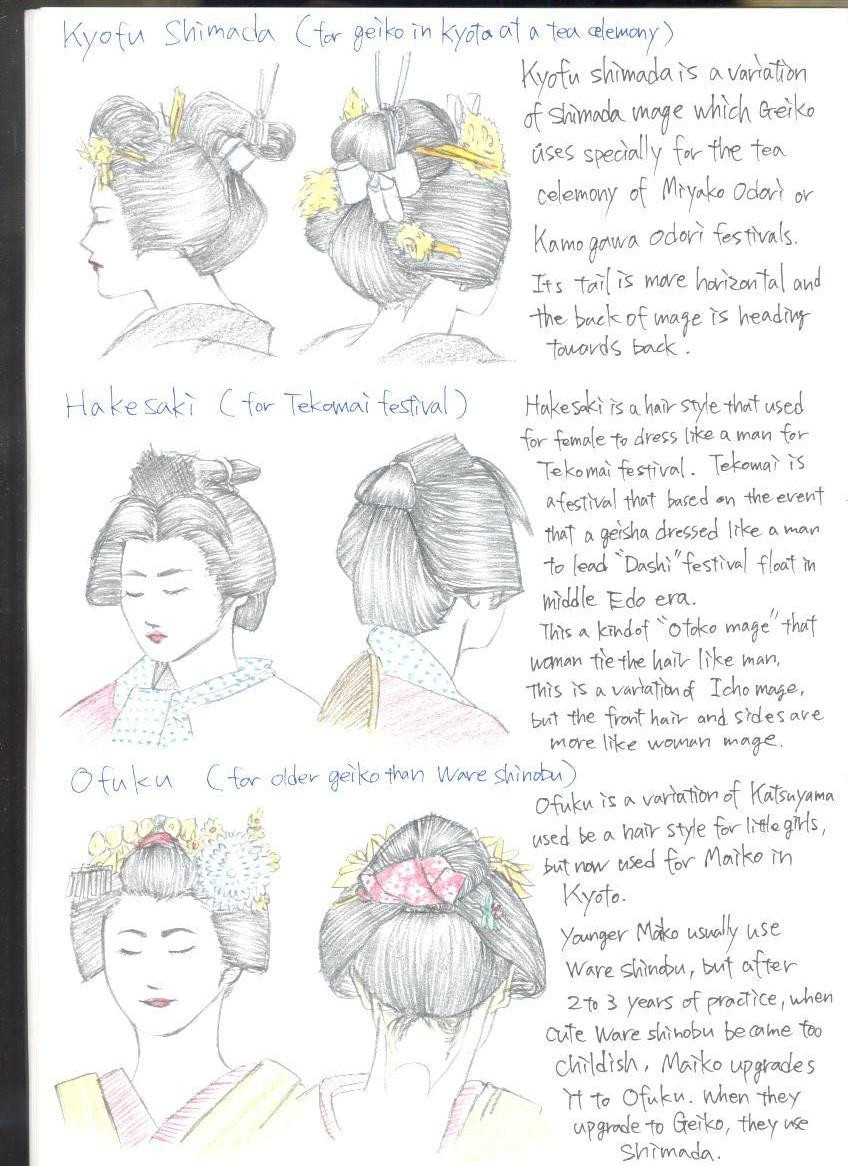 Kyofu Shimada (for geiko in kyoto at a tea celemony)
Kyofu shimada is a variation
of shimada mage which Geiko
uses specially for the tea
celemony of Miyako Odori or
Kamogawa Odori festivals.
Its tail is more horizontal and
the back of mage is heading
towards back.
Hakesaki (for Tekomai festival)
Hakesaki is a hair style that used
for female to dress like a man for
Tekomai festival. Tekomai is
a festival that based on the event
that a geisha dressed like a man
to lead "Dashi" festival float in
middle Edo era.
This a kind of "Otoko mage" that
woman tie the hair like man.
This is a variation of Icho mage,
but the front hair and sides are
more like woman mage.
Ofuku (for older geiko than Ware shinobu)
Ofuku is a variation of Katsuyama
used be a hair style for little girls,
but now used for Maiko in
Kyoto.
Younger Maiko usually use
Ware shinobu, but after
2 to 3 years of practice, when
cute Ware shinobu became too
childish, Maiko upgrades
it to Ofuku. When they
upgrade to Geiko, they use
Shimada.